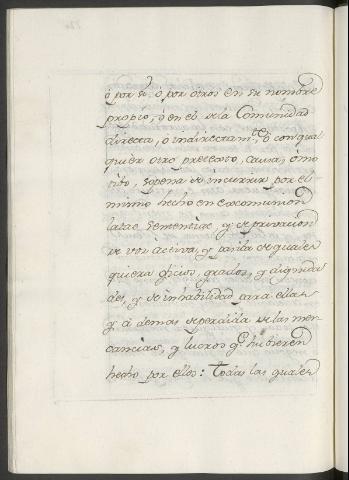 ò por si, ò por otros en su nombre
propio, ò en el de la Comunidad
directa, o indirectam.te, ò con qual
quier otro pretexto, causa, ò mo
tibo, sopena de incurrir por el
mismo hecho en excomunion
latae sententiae, y de privacion
de voz activa, y pasiba de quales
quiera oficios, grados, y dignida
des, y de inhabilidad para ellas
y a demas de perdida de las mer
cancias, y lucros q.e hubieren
hecho por ellos: Todas las quales